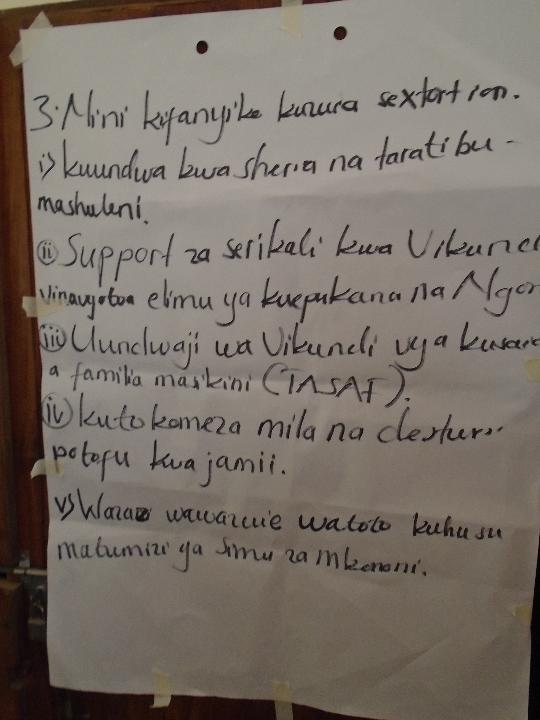 3. Nini kifanyike kuzuia sextortion.
i) kuundwa kwa sheria na taratibu -
mashuleni.
(ii) Support za serikali kwa Vikund
vinavyotoa elimu ya kuepukana na Ngon
(iii) Uundwaji wa Vikundi vya kusaid
a familia masikini (TASAF).
(iv) kutokomeza mila na desturi
potofu kwa jamii.
v) Wazazi wawazuie watoto kuhusu
matumizi ya simu za mkononi.